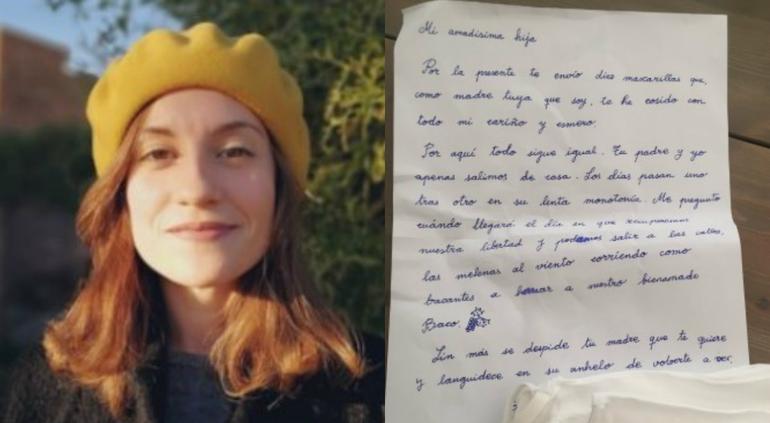 Mi amadisima hija
Por la presente te envío dies mascarillas que,
como madre tuya que soy, te he cosido con
todo mi cariño y esmero.
Por aquí todo sigue igual. Tu padre y yo
apenas salimos de casa. Los días pasan uno
tras otro en su lenta monotonía. Me pregunto
cuándo llegará el día en que recuperemos
nuestra libertad y podamos salir a las calles,
las melenas al viento corriendo como
bacantes a honrar a nuestro bienamado
Baco.
Sin más se despide tu madre que te quiere
y languidece en su anhelo de volverte a ver,